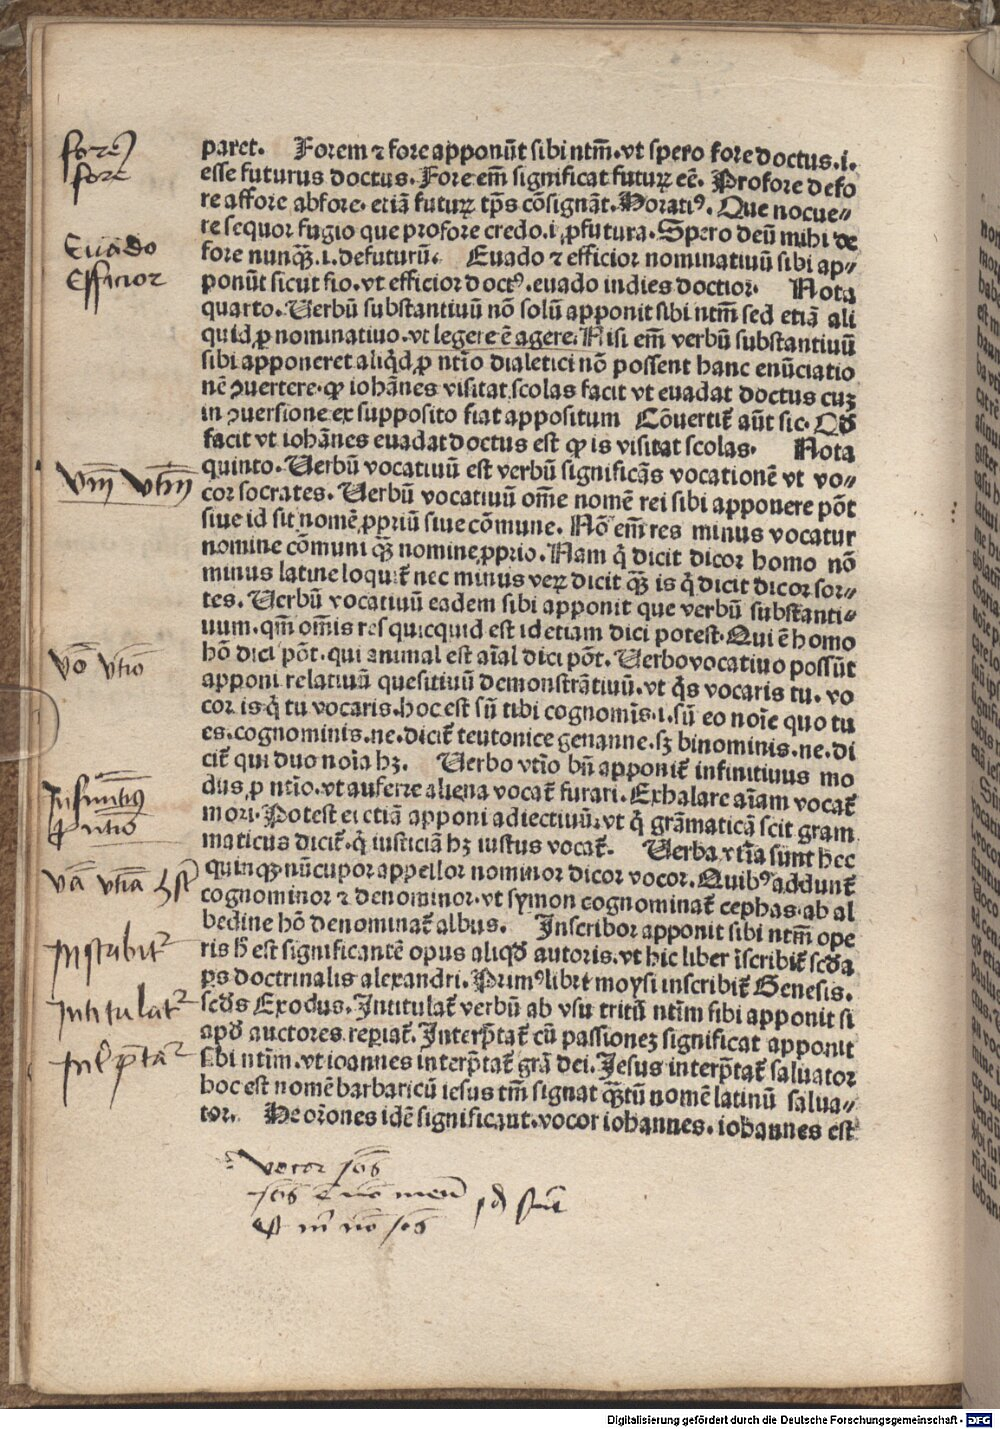 paret. Forem ⁊ fore apponūt sibi ntm̄. vt spero fore doctus .i.
esse futurus doctus. Fore em̄ significat futuꝝ eē. Profore defo
re affore abfore. etiā futuꝝ tp̄s cōsignāt. Horatiꝰ. Que nocue⸗
re sequor fugio que profore credo .i. ꝓfutura. Spero deū mihi de
fore nunqȝ̄ .i. defuturū. Euado ⁊ efficior nominatiuū sibi ap⸗
ponūt sicut fio. vt efficior doctꝰ. euado indies doctior. Nota
quarto. Verbū substantiuū nō solū apponit sibi ntm̄ sed etiā ali
quid ꝓ nominatiuo. vt legere ē agere. Nisi em̄ verbū substantiuū
sibi apponeret aliqd̄ ꝓ ntīo dialetici nō possent hanc enūciatio
nē ꝯuertere. ꝙ iohānes visitat scolas facit vt euadat doctus cuȝ
in ꝯuersione ex supposito fiat appositum Cōuertit᷑ aūt sic. Qd̄
facit vt iohānes euadat doctus est ꝙ is visitat scolas. Nota
quinto. Verbū vocatiuū est verbū significās vocationē vt vo⸗
cor socrates. Verbū vocatiuū om̄e nomē rei sibi apponere pōt
siue id sit nomē ꝓpriū siue cōmune. Nō em̄ res minus vocatur
nomine cōmuni qȝ̄ nomine ꝓprio. Nam q̇ dicit dicor homo nō
minus latine loquit᷑ nec minus veꝝ dicit qȝ̄ is q̇ dicit dicor sor⸗
tes. Verbū vocatiuū eadem sibi apponit que verbū substanti⸗
uum. qm̄ om̄is res quicquid est id etiam dici potest. Qui ē homo
hō dici pōt. qui animal est aīal dici pōt. Verbo vocatiuo possūt
apponi relatiuū quesitiuū demonstrātiuū. vt q̇s vocaris tu. vo
cor is q̇ tu vocaris. hoc est sū tibi cognomīs .i. sū eo noīe quo tu
es. cognominis. ne. dicit᷑ teutonice genanne. sȝ binominis. ne. di
cit᷑ qui duo noīa hȝ. Verbo vtīo bn̄ apponit᷑ infinitiuus mo
dus ꝓ ntīo. vt auferre aliena vocat᷑ furari. Exhalare aīam vocat᷑
mori. Potest ei etiā apponi adiectiuū. vt q̇ grāmaticā scit gram
maticus dicit᷑. q̇ iusticiā hȝ iustus vocat᷑. Verba vtīa sunt hec
quinqȝ nūcupor appellor nominor dicor vocor. Quibꝰ addunt᷑
cognominor ⁊ denominor. vt symon cognominat᷑ cephas. ab al
bedine hō denominat᷑ albus. Inscribor apponit sibi ntm̄ ope
ris h̄ est significantē opus aliqd̄ autoris. vt hic liber īscribit᷑ scd̄a
ps̄ doctrinalis alexandri. Primꝰ liber moysi inscribit᷑ Genesis.
scd̄s Exodus. Intitulat᷑ verbū ab vsu tritū ntīm sibi apponit si
apd̄ auctores reꝑiat᷑. Interp̄tat᷑ cū passioneȝ significat apponit
sibi ntīm. vt ioannes interp̄tat᷑ grā dei. Jesus interp̄tat᷑ saluator
hoc est nomē barbaricū iesus tm̄ signat qȝ̄tū nomē latinū salua⸗
tor. He orōnes idē significant. vocor iohannes. iohannes est
forē
fore
Euado
Efficior
Vm̄ Vtīm
Vō vtīo
Infinitiuꝰ
ꝓ ntīo
Vā vtīa
Inscribit᷑
Intitulat᷑
Int̄p̄tat᷑
Vocor
Digitalisierung gefördert durch die Deutsche Forschungsgemeinschaft - DFG